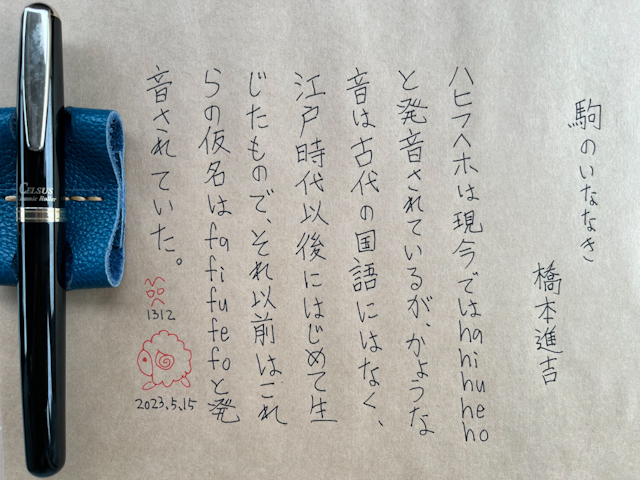 駒のいななき
橋本進吉
ハヒフヘホは現今ではhahihuheho
と発音されているが、かような
音は古代の国語にはなく、
江戸時代以後にはじめて生
じたもので、それ以前はこれ
らの仮名はfafifufefoと発
音されていた。
1312
2023.5.15
CELSUS